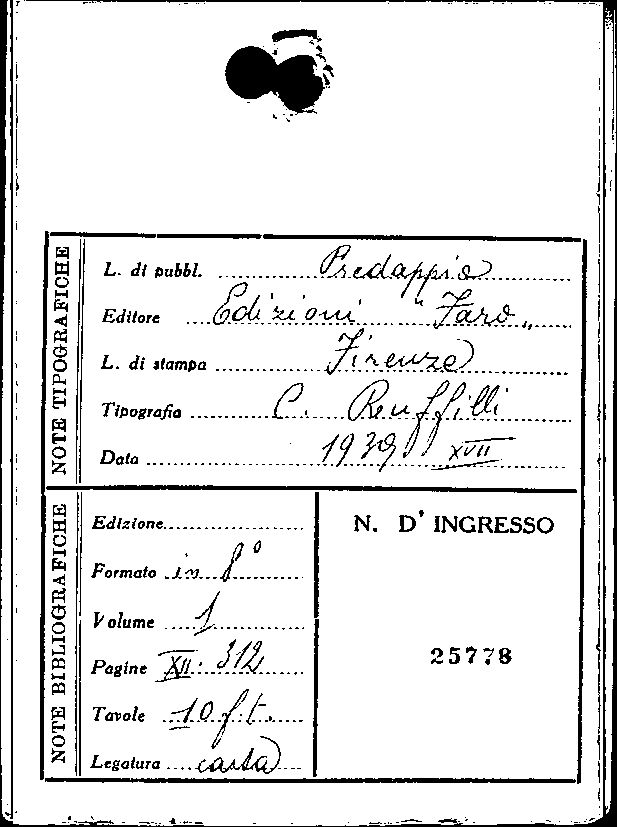 NOTE TIPOGRAFICHE
L. di pubbl. Predappio
Editore Edizioni "Faro"
L. di stampa Firenze
Tipografia C. Ruffilli
Data 1939 XVII
NOTE BIBLIOGRAFICHE
Edizione
Formato in 8°
Volume 1
Pagine XII. 312
Tavole 10 f.t.
Legatura carta
N. D' INGRESSO
25778